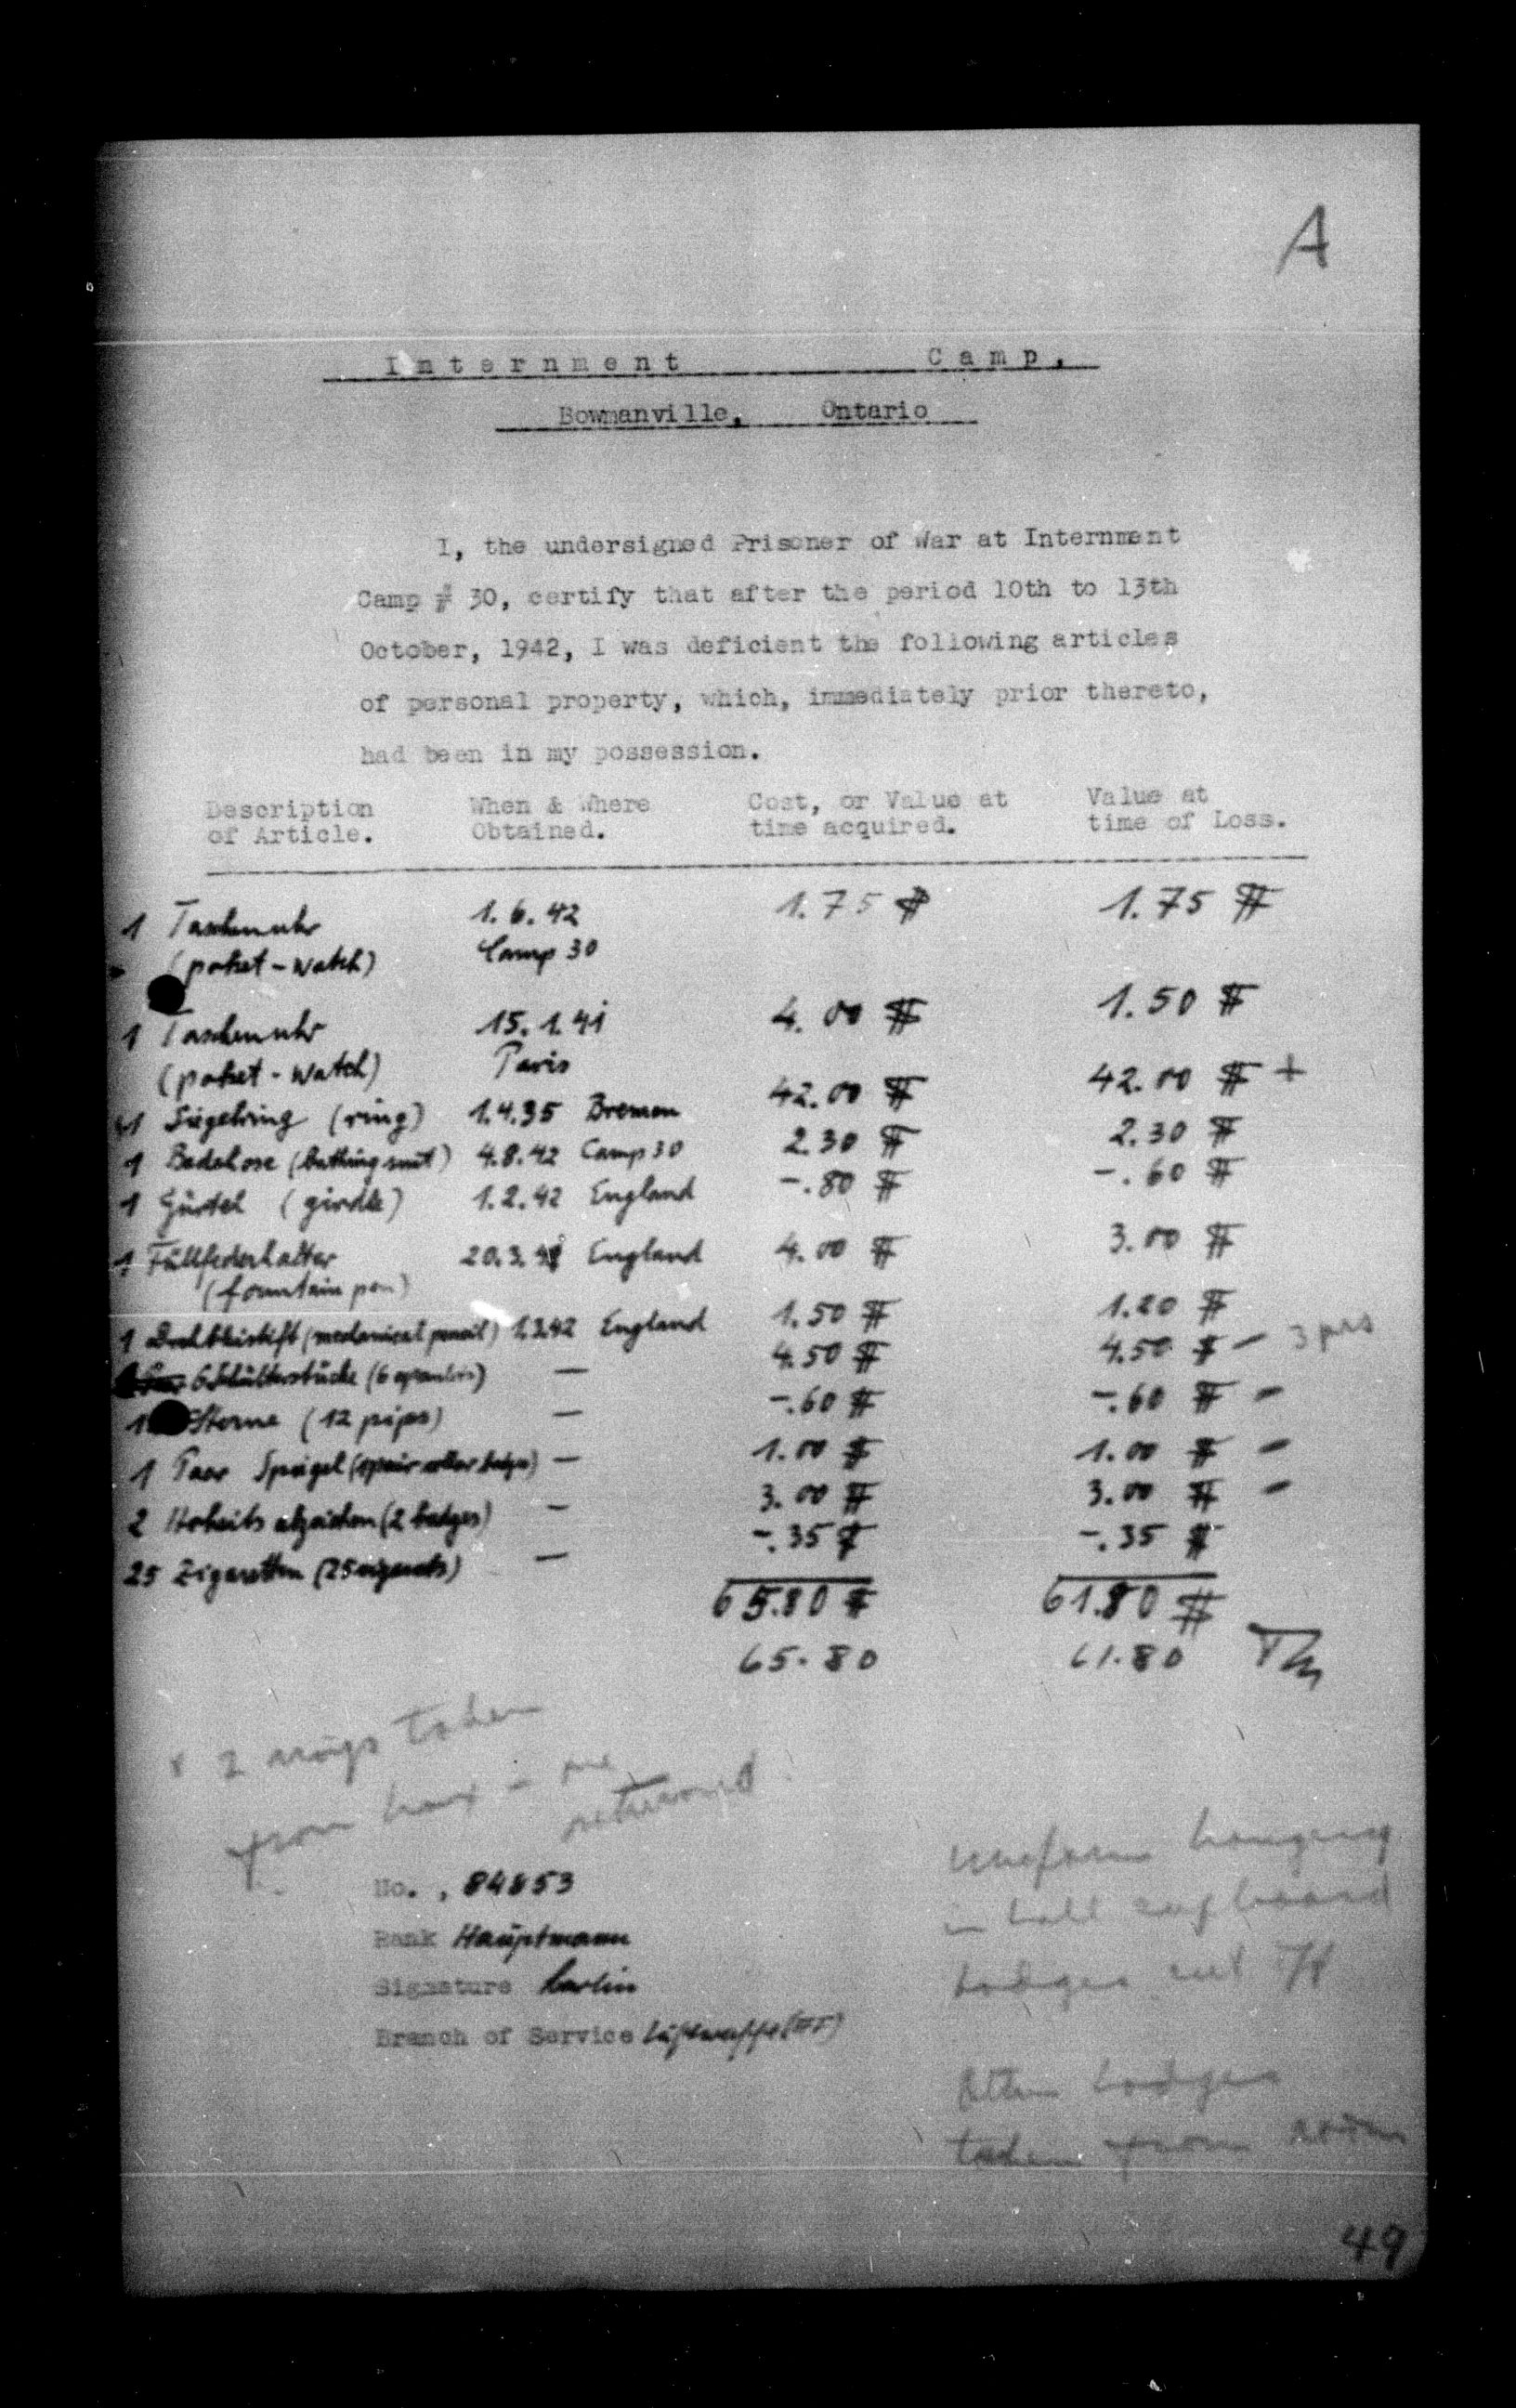 A
Internment Camp,
Bowmanville, Ontario
I, the undersigned Prisoner of War at Internment
Camp # 30, certify that after the period 10th to 13th
October, 1942, I was deficient the following articles
of personal property, which, immediately prior thereto,
had been in my possession.
Description of Article. When & Where Obtained. Cost, or Value at time acquired. Value at time of Loss.
1 Taschenuhr 1.6.42 1.75 $ 1.75 $
(poket-watch) Camp 30
1 Taschenuhr 15.1.41 4.00 $ 1.50 $
(poket-watch) Paris
1 Siegelring (ring) 1.4.35 Bremen 42.00 $ 42.00 $ +
1 Badehose (bathing suit) 4.8.42 Camp 30 2.30 $ 2.30 $
1 Gürtel (girdle) 1.2.42 England -.80 $ -.60 $
1 Füllfederhalter 20.3.41 England 4.00 $ 3.00 $
(fountain pen)
1 Drehbleistift (mechanical pencil) 1.3.42 England 1.50 $ 1.20 $
6 Schulterstücke (6 epaulets) — 4.50 $ 4.50 $ - 3 prs
Sterne (12 pips) — -.60 $ -.60 $ -
1 Paar Spiegel (1 pair collar badges) — 1.00 $ 1.00 $ -
2 Hoheitsabzeichen (2 badges) — 3.00 $ 3.00 $ -
25 Zigaretten (25 cigarets) — -.35 $ -.35 $
65.80 $ 61.80 $
65.80 61.80
2 rings taken
from - one
returned
No. , 84853
Rank Hauptmann
Signature
Branch of Service Luftwaffe
uniform hanging
in hall cupboard
badges cut off
Other badges
taken from room
49